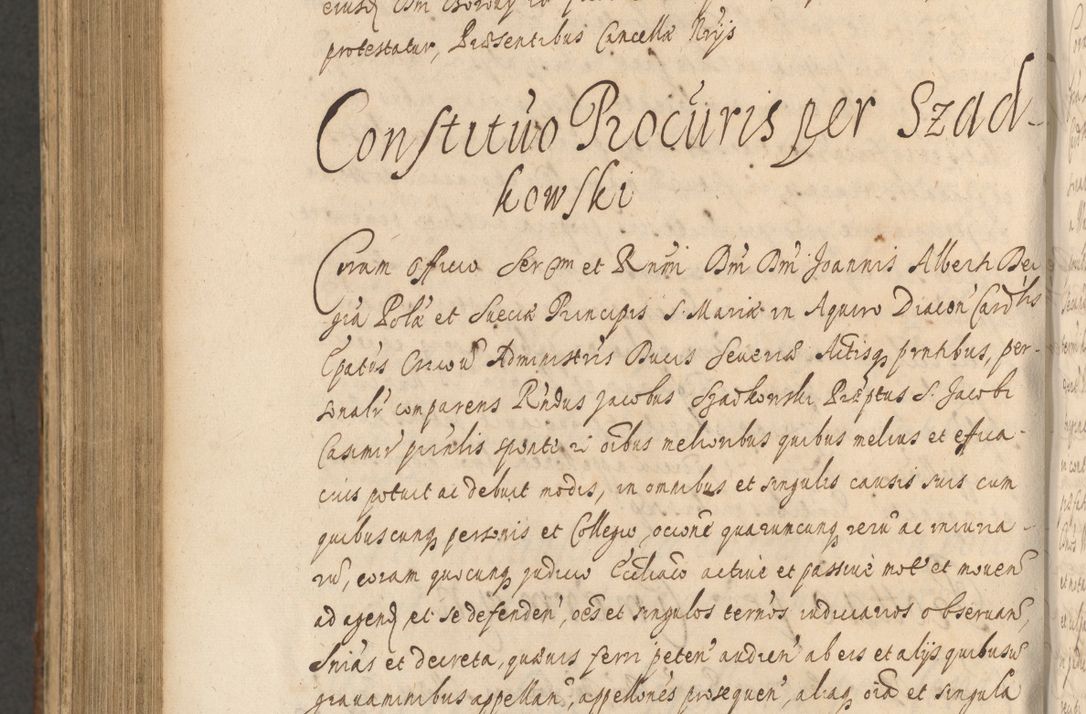 protestatur, Præsentibus Cancellæ Nrijs
Constitúo Procúris per Szad-
kowski
Coram Officio Sermi et Rndmi Dni Dni Joannis Alberti Dei
giã Polæ et Sueciæ Principis S. Mariæ in Aquiro Diacon Cardlis
Epatus Cracou Administris Ducis Severiæ Actisq pntibus, per-
sonalr comparens Rndus Jacobus Szadkowski Præptus S. Jacobi
Casimir prinlis sponte oibus melioribus quibus melius et effica-
cius potuit ac debuit modis, in omnibus et singulis causis suis cum
quibuscunq personis et Collegio, occione quaruncunq rerũ ac iniuria
rũ, coram quocunq judicio Ecclliaco active et passive mot et mouen
ad agend et se defenden, oes et singulos ternos iudiciarios observan,
snias et decreta, quævis ferri peten audien ab eis et alijs quibusu
gravaminibus appellan, appellones prosequen, aliaq oia et singula